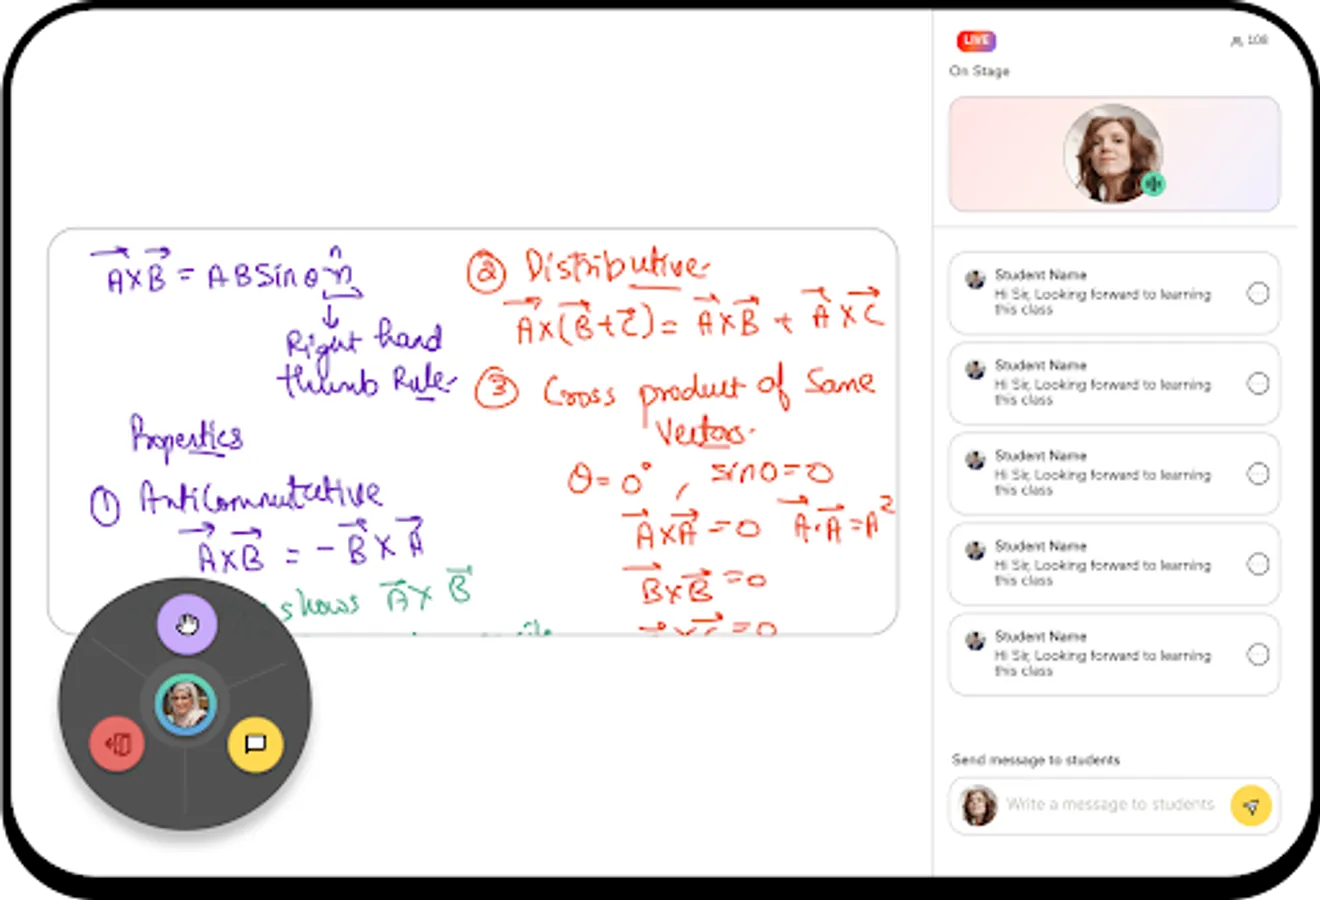 A⃗ X B⃗ = A B Sin θ n̂
Right hand
thumb Rule
Properties
① Anticommutative
A⃗ X B⃗ = - B⃗ X A⃗
shows A⃗ X B⃗
② Distributive
A⃗ X (B⃗ + C⃗) = A⃗ X B⃗ + A⃗ X C⃗
③ Cross product of Same
Vectors.
θ = 0° , sin 0 = 0
A⃗ X A⃗ = 0 A⃗ . A⃗ = A²
B⃗ X B⃗ = 0
= 0
LIVE
108
On Stage
Student Name
Hi Sir, Looking forward to learning
this class
Student Name
Hi Sir, Looking forward to learning
this class
Student Name
Hi Sir, Looking forward to learning
this class
Student Name
Hi Sir, Looking forward to learning
this class
Student Name
Hi Sir, Looking forward to learning
this class
Send message to students
Write a message to students